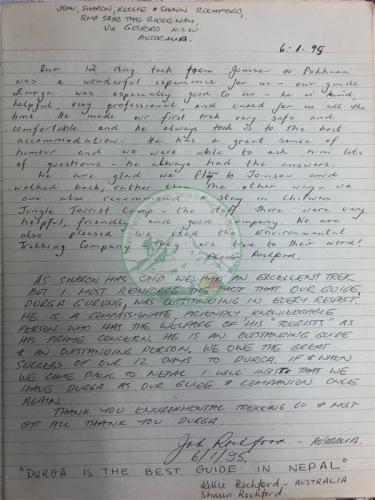 JOHN, SHARON, KELLIE & SHAUN ROCHFORD,
RMB 5288 THE RIDGEWAY,
VIA GOSFORD N.S.W
AUSTRALIA.
6-1-95
Our 12 day trek from Jomsom to Pokhara
was a wonderful experience for us - our guide
Durga was especially good to us - he is kind
helpful, very professional, and cared for us all the
time. He made our first trek very safe and
comfortable and he always took us to the best
accommodation. He has a great sense of
humour and we were able to ask him lots
of questions - he always had the answers.
We are glad we flew to Jomsom and
walked back, rather than the other way - we
can also recommend a stay in Chitwan
Jungle Tourist Camp - the staff there were very
helpful, friendly and good company. We are
also pleased we used the Environmental
Trekking Company - they are true to their word!
Rochford.
AS SHARON HAS SAID WE HAD AN EXCELLENT TREK
BUT I MUST REINFORCE THE FACT THAT OUR GUIDE,
DURGA GURUNG, WAS OUTSTANDING IN EVERY RESPECT
HE IS A COMPASSIONATE, FRIENDLY, KNOWLEDGABLE
PERSON WHO HAS THE WELFARE OF HIS "TOURISTS" AS
HIS PRIME CONCERN. HE IS AN OUTSTANDING GUIDE
& AN OUTSTANDING PERSON, WE OWE THE GREAT
SUCCESS OF OUR 12 DAYS TO DURGA. IF & WHEN
WE COME BACK TO NEPAL I WILL INSIST THAT WE
HAVE DURGA AS OUR GUIDE & COMPANION ONCE
AGAIN.
THANK YOU ENVIRONMENTAL TREKKING CO & MOST
OF ALL THANK YOU DURGA
John Rochford - AUSTRALIA.
6/1/95.
"DURGA IS THE BEST GUIDE IN NEPAL"
Kellie Rochford - AUSTRALIA
Shaun Rochford.